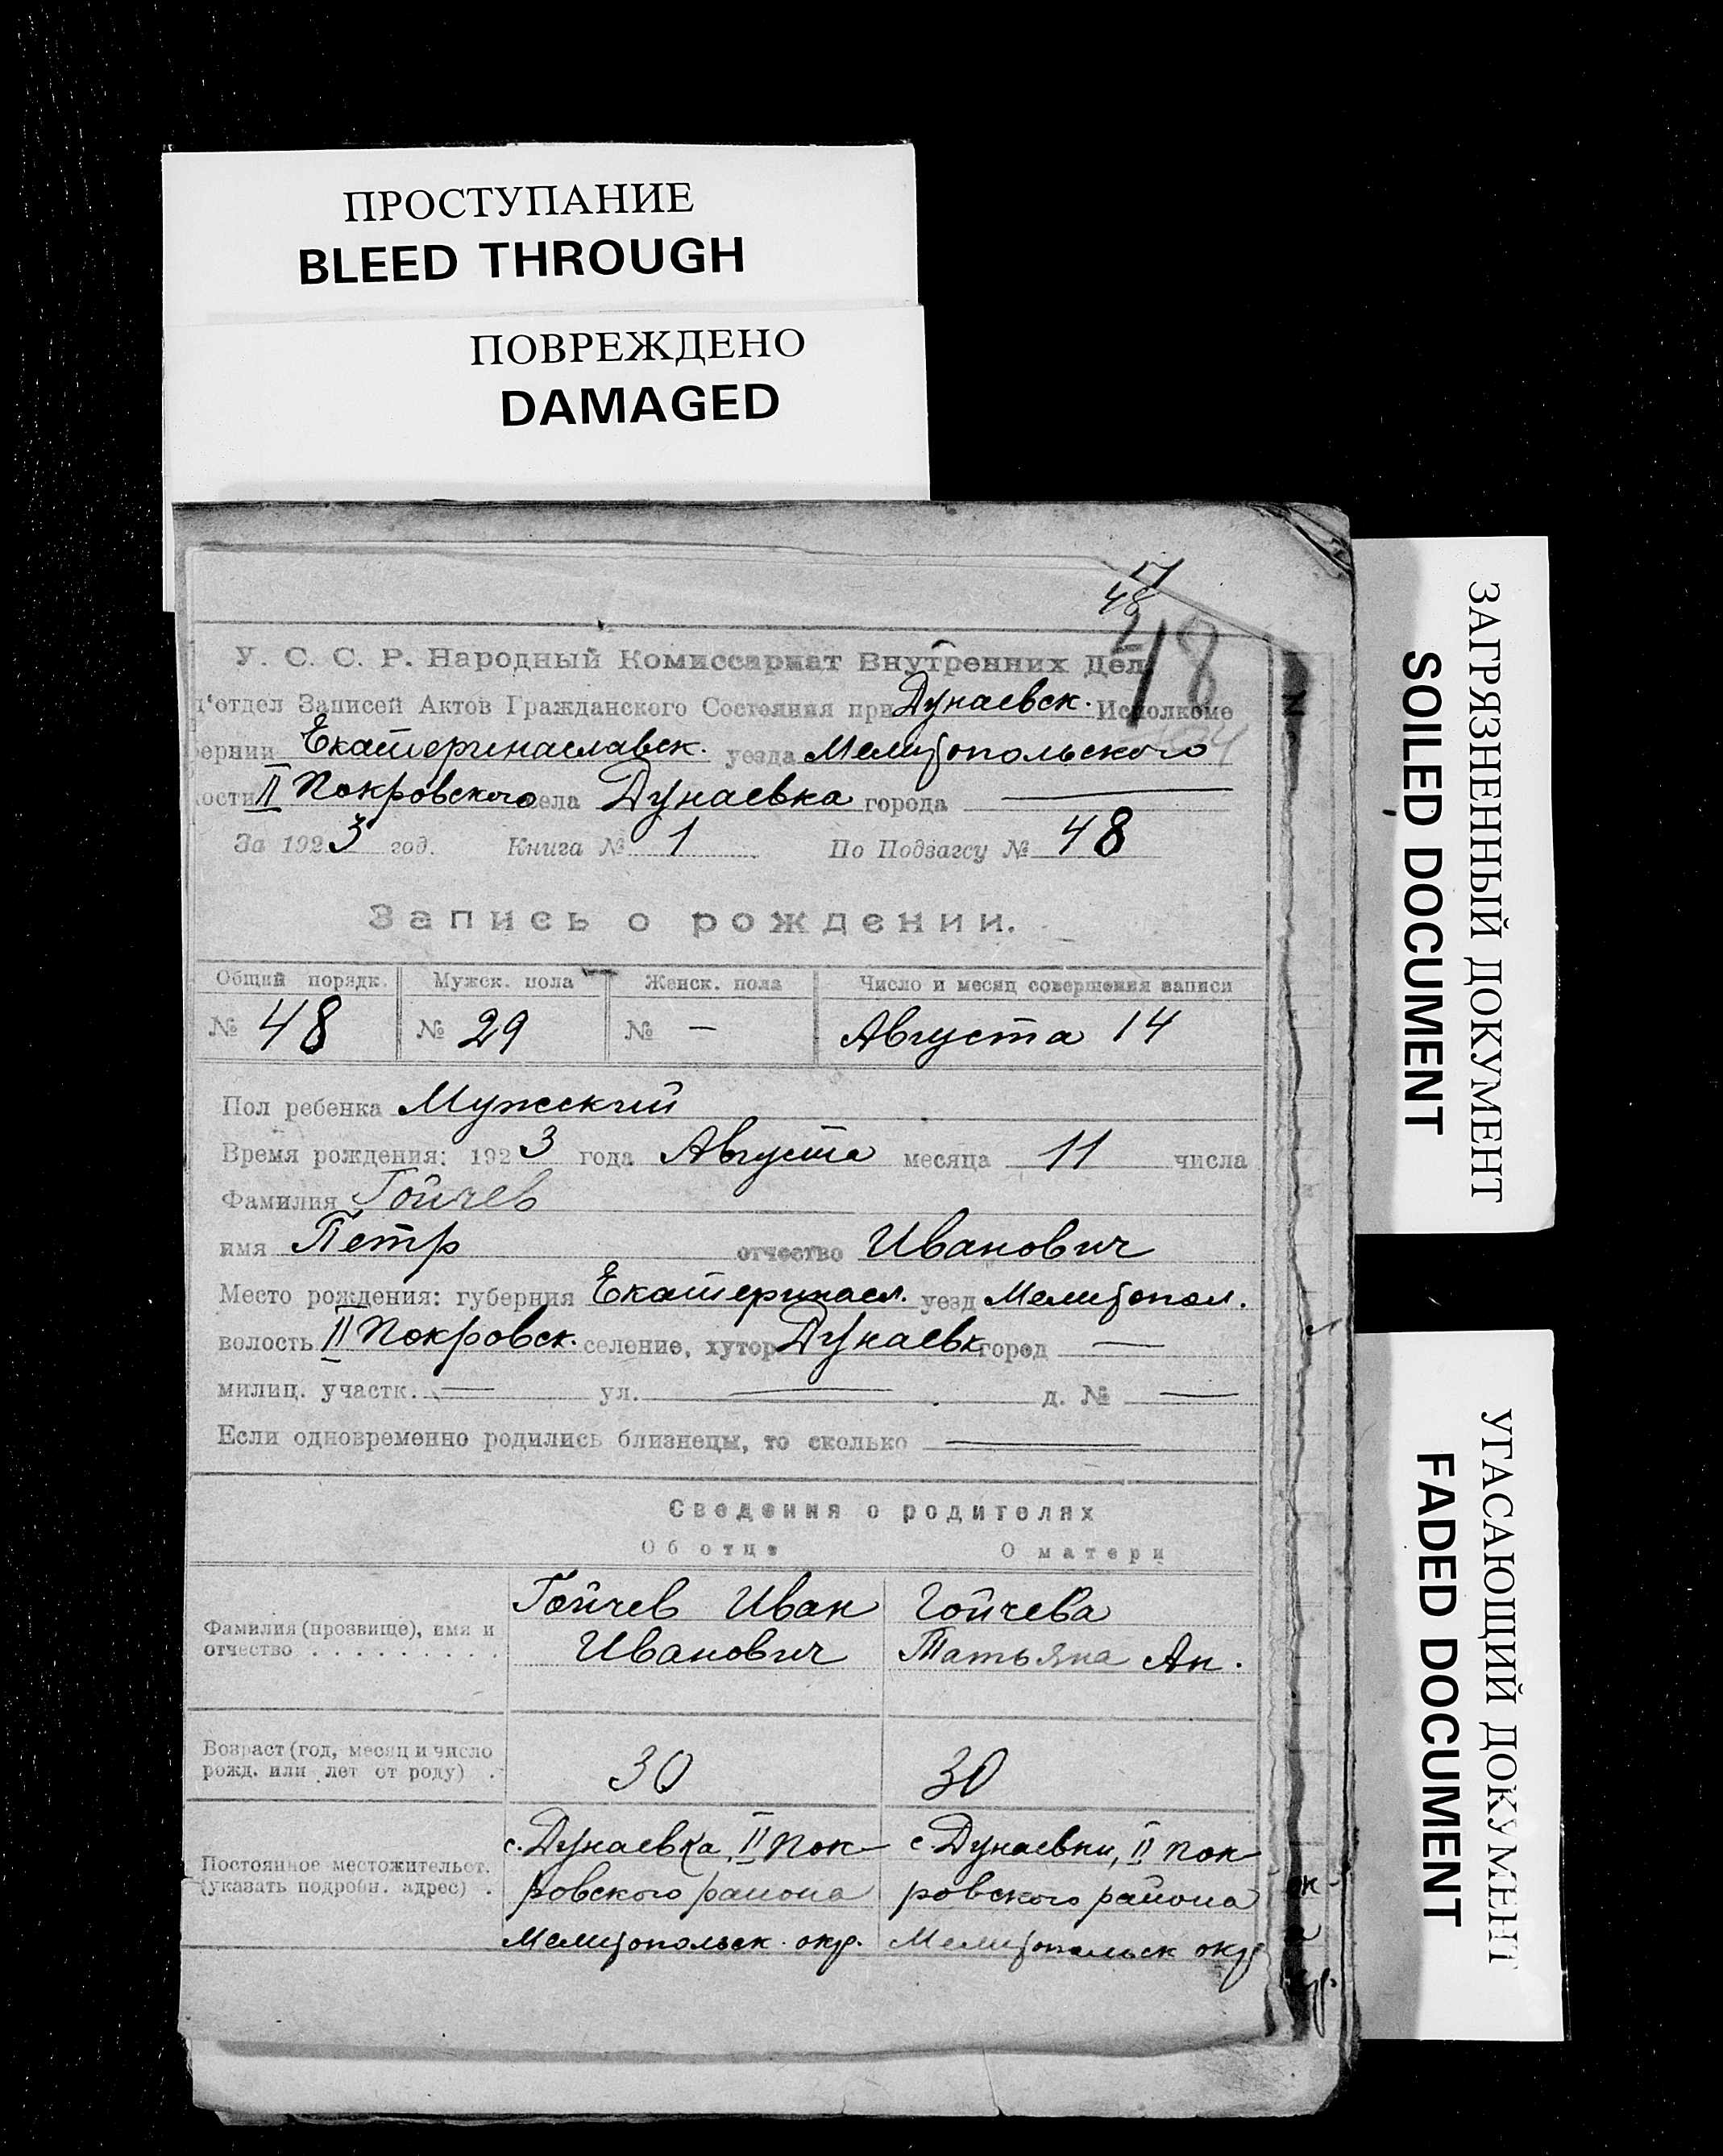 ПРОСТУПАНИЕ
BLEED THROUGH
ПОВРЕЖДЕНО
DAMAGED
ЗАГРЯЗНЕННЫЙ ДОКУМЕНТ
SOILED DOCUMENT
УГАСАЮЩИЙ ДОКУМЕНТ
FADED DOCUMENT
17
48
218
У. С. С. Р. Народный Комиссариат Внутренних Дел
д'отдел Записей Актов Гражданского Состояния при Дунаевск. Исполкоме
бернии Екатеринаславск. уезда Мелитопольского
ости II Покровского села Дунаевка города —
За 1923 год. Книга № 1 По Подзагсу № 48
Запись о рождении.
Общий порядк. Мужск. пола Женск. пола Число и месяц совершения записи
№ 48 № 29 № — Августа 14
Пол ребенка Мужеский
Время рождения: 1923 года Августа месяца 11 числа
Фамилия Гойчев
имя Петр отчество Иванович
Место рождения: губерния Екатеринасл. уезд Мелитопол.
волость II Покровск. селение, хутор Дунаевк город —
милиц. участк. — ул. — д. № —
Если одновременно родились близнецы, то сколько —
Сведения о родителях
Об отце О матери
Фамилия (прозвище), имя и отчество . . . . . . . . .
Гойчев Иван
Иванович
Гойчева
Татьяна Ан.
Возраст (год, месяц и число
рожд. или лет от роду) .
30 30
Постоянное местожительст.
(указать подробн. адрес) .
с. Дунаевка, II Пок-
ровского района
Мелитопольск. окр.
с. Дунаевки, II Пок-
ровского района
Мелитопольск окр